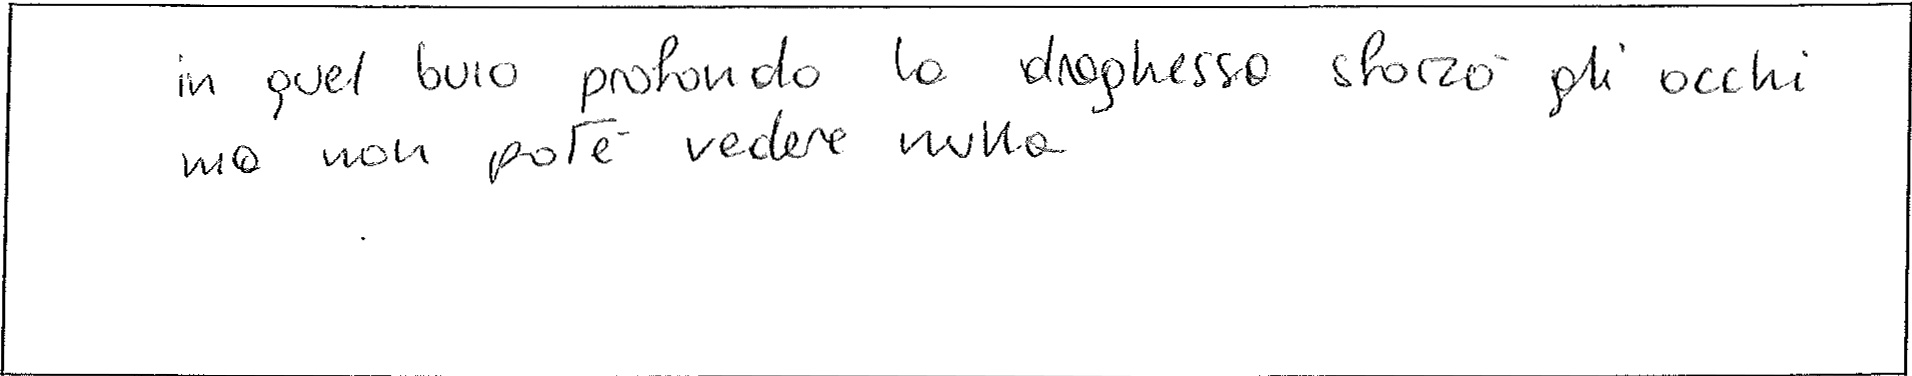 in quel buio profondo la draghessa sforzò gli occhi
ma non potè vedere nulla